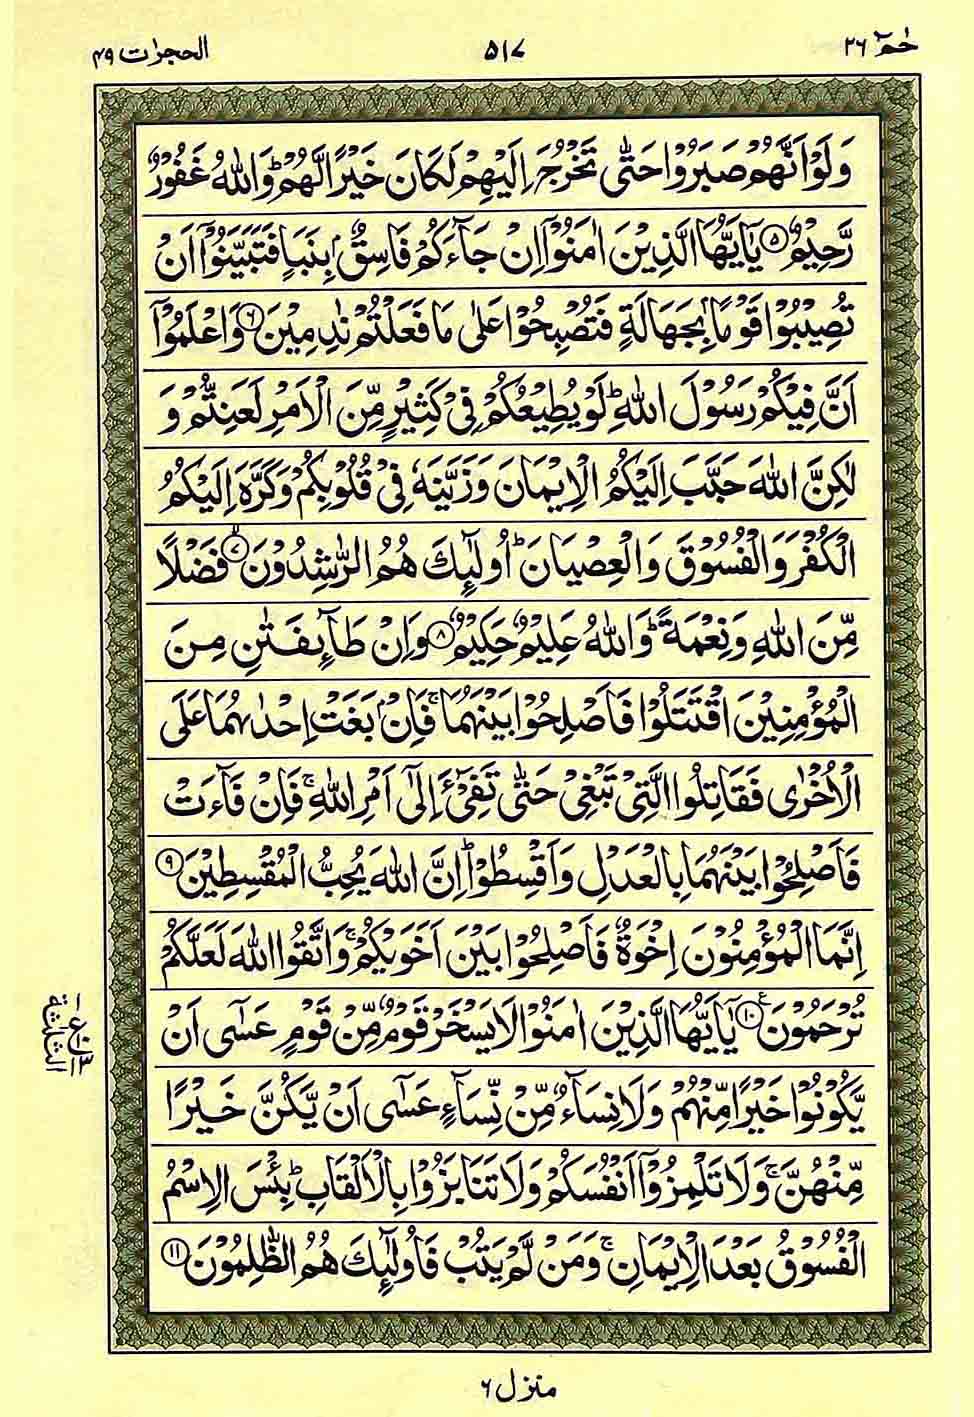 حٰمٓ ٢٦
٥١٧
الحجرٰت ٤٩
وَلَوْ اَنَّهُمْ صَبَرُوْا حَتّٰى تَخْرُجَ اِلَيْهِمْ لَكَانَ خَيْرًا لَّهُمْ ؕ وَاللّٰهُ غَفُوْرٌ
رَّحِيْمٌ ﴿٥﴾ يٰۤاَيُّهَا الَّذِيْنَ اٰمَنُوْۤا اِنْ جَآءَكُمْ فَاسِقٌۢ بِنَبَاٍ فَتَبَيَّنُوْۤا اَنْ
تُصِيْبُوْا قَوْمًۢا بِجَهَالَةٍ فَتُصْبِحُوْا عَلٰى مَا فَعَلْتُمْ نٰدِمِيْنَ ﴿٦﴾ وَاعْلَمُوْۤا
اَنَّ فِيْكُمْ رَسُوْلَ اللّٰهِ ؕ لَوْ يُطِيْعُكُمْ فِيْ كَثِيْرٍ مِّنَ الْاَمْرِ لَعَنِتُّمْ وَ
لٰكِنَّ اللّٰهَ حَبَّبَ اِلَيْكُمُ الْاِيْمَانَ وَزَيَّنَهٗ فِيْ قُلُوْبِكُمْ وَكَرَّهَ اِلَيْكُمُ
الْكُفْرَ وَالْفُسُوْقَ وَالْعِصْيَانَ ؕ اُولٰٓئِكَ هُمُ الرّٰشِدُوْنَ ﴿٧﴾ۙ فَضْلًا
مِّنَ اللّٰهِ وَنِعْمَةً ؕ وَاللّٰهُ عَلِيْمٌ حَكِيْمٌ ﴿٨﴾ وَاِنْ طَآئِفَتٰنِ مِنَ
الْمُؤْمِنِيْنَ اقْتَتَلُوْا فَاَصْلِحُوْا بَيْنَهُمَا ۚ فَاِنْۢ بَغَتْ اِحْدٰىهُمَا عَلَى
الْاُخْرٰى فَقَاتِلُوا الَّتِيْ تَبْغِيْ حَتّٰى تَفِيْٓءَ اِلٰۤى اَمْرِ اللّٰهِ ۚ فَاِنْ فَآءَتْ
فَاَصْلِحُوْا بَيْنَهُمَا بِالْعَدْلِ وَاَقْسِطُوْا ؕ اِنَّ اللّٰهَ يُحِبُّ الْمُقْسِطِيْنَ ﴿٩﴾
اِنَّمَا الْمُؤْمِنُوْنَ اِخْوَةٌ فَاَصْلِحُوْا بَيْنَ اَخَوَيْكُمْ ۚ وَاتَّقُوا اللّٰهَ لَعَلَّكُمْ
تُرْحَمُوْنَ ﴿١٠﴾ؑ يٰۤاَيُّهَا الَّذِيْنَ اٰمَنُوْا لَا يَسْخَرْ قَوْمٌ مِّنْ قَوْمٍ عَسٰۤى اَنْ
يَّكُوْنُوْا خَيْرًا مِّنْهُمْ وَلَا نِسَآءٌ مِّنْ نِّسَآءٍ عَسٰۤى اَنْ يَّكُنَّ خَيْرًا
مِّنْهُنَّ ۚ وَلَا تَلْمِزُوْۤا اَنْفُسَكُمْ وَلَا تَنَابَزُوْا بِالْاَلْقَابِ ؕ بِئْسَ الِاسْمُ
الْفُسُوْقُ بَعْدَ الْاِيْمَانِ ۚ وَمَنْ لَّمْ يَتُبْ فَاُولٰٓئِكَ هُمُ الظّٰلِمُوْنَ ﴿١١﴾
منزل ٦